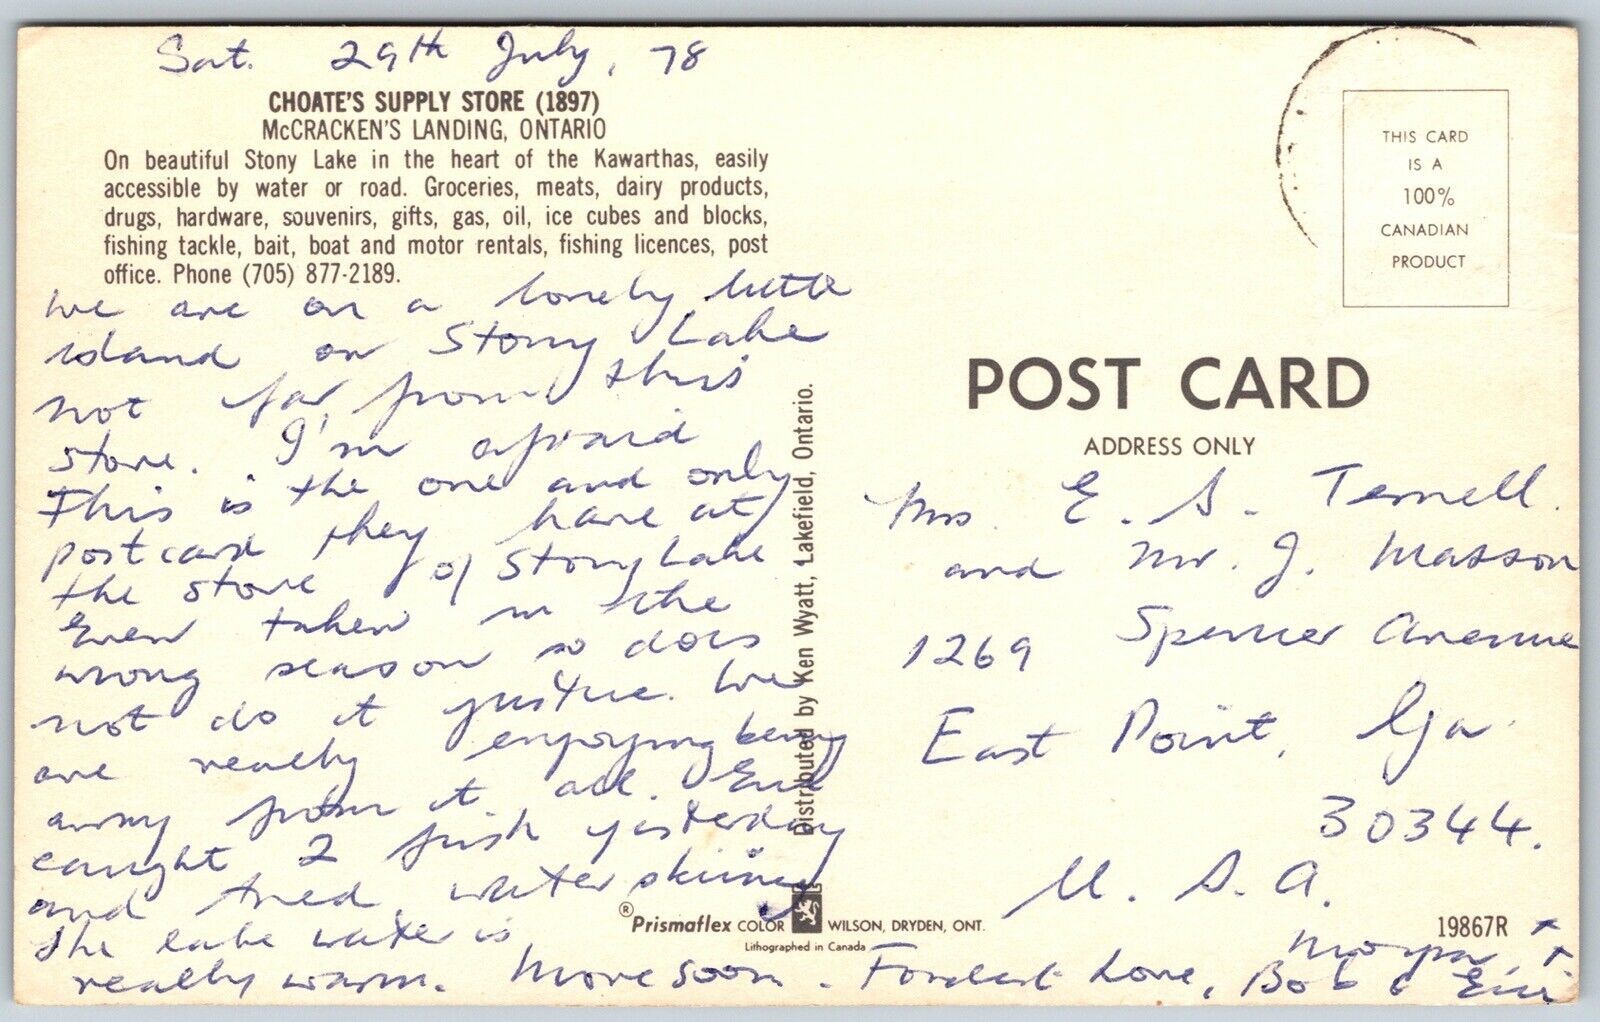 Sat. 29th July, 78
CHOATE'S SUPPLY STORE (1897)
McCRACKEN'S LANDING, ONTARIO
On beautiful Stony Lake in the heart of the Kawarthas, easily
accessible by water or road. Groceries, meats, dairy products,
drugs, hardware, souvenirs, gifts, gas, oil, ice cubes and blocks,
fishing tackle, bait, boat and motor rentals, fishing licences, post
office. Phone (705) 877-2189.
We are on a lonely little
island on Stony Lake
not far from this
store. I'm afraid
this is the one and only
postcard they have at
the store of Stony Lake
Even taken in the
wrong season so does
not do it justice. We
are really enjoying being
away from it all.
caught 2 fish yesterday
and tried water skiing
The lake water is
really warm. More soon. Fondest Love,
Morgan
Bob &
Distributed by Ken Wyatt, Lakefield, Ontario.
® Prismaflex COLOR WILSON, DRYDEN, ONT.
Lithographed in Canada
THIS CARD
IS A
100%
CANADIAN
PRODUCT
POST CARD
ADDRESS ONLY
Mrs. E. S. Terrell
and Mr. J. Masson
1269 Spencer Avenue
East Point, Ga
30344.
U. S. A.
19867R